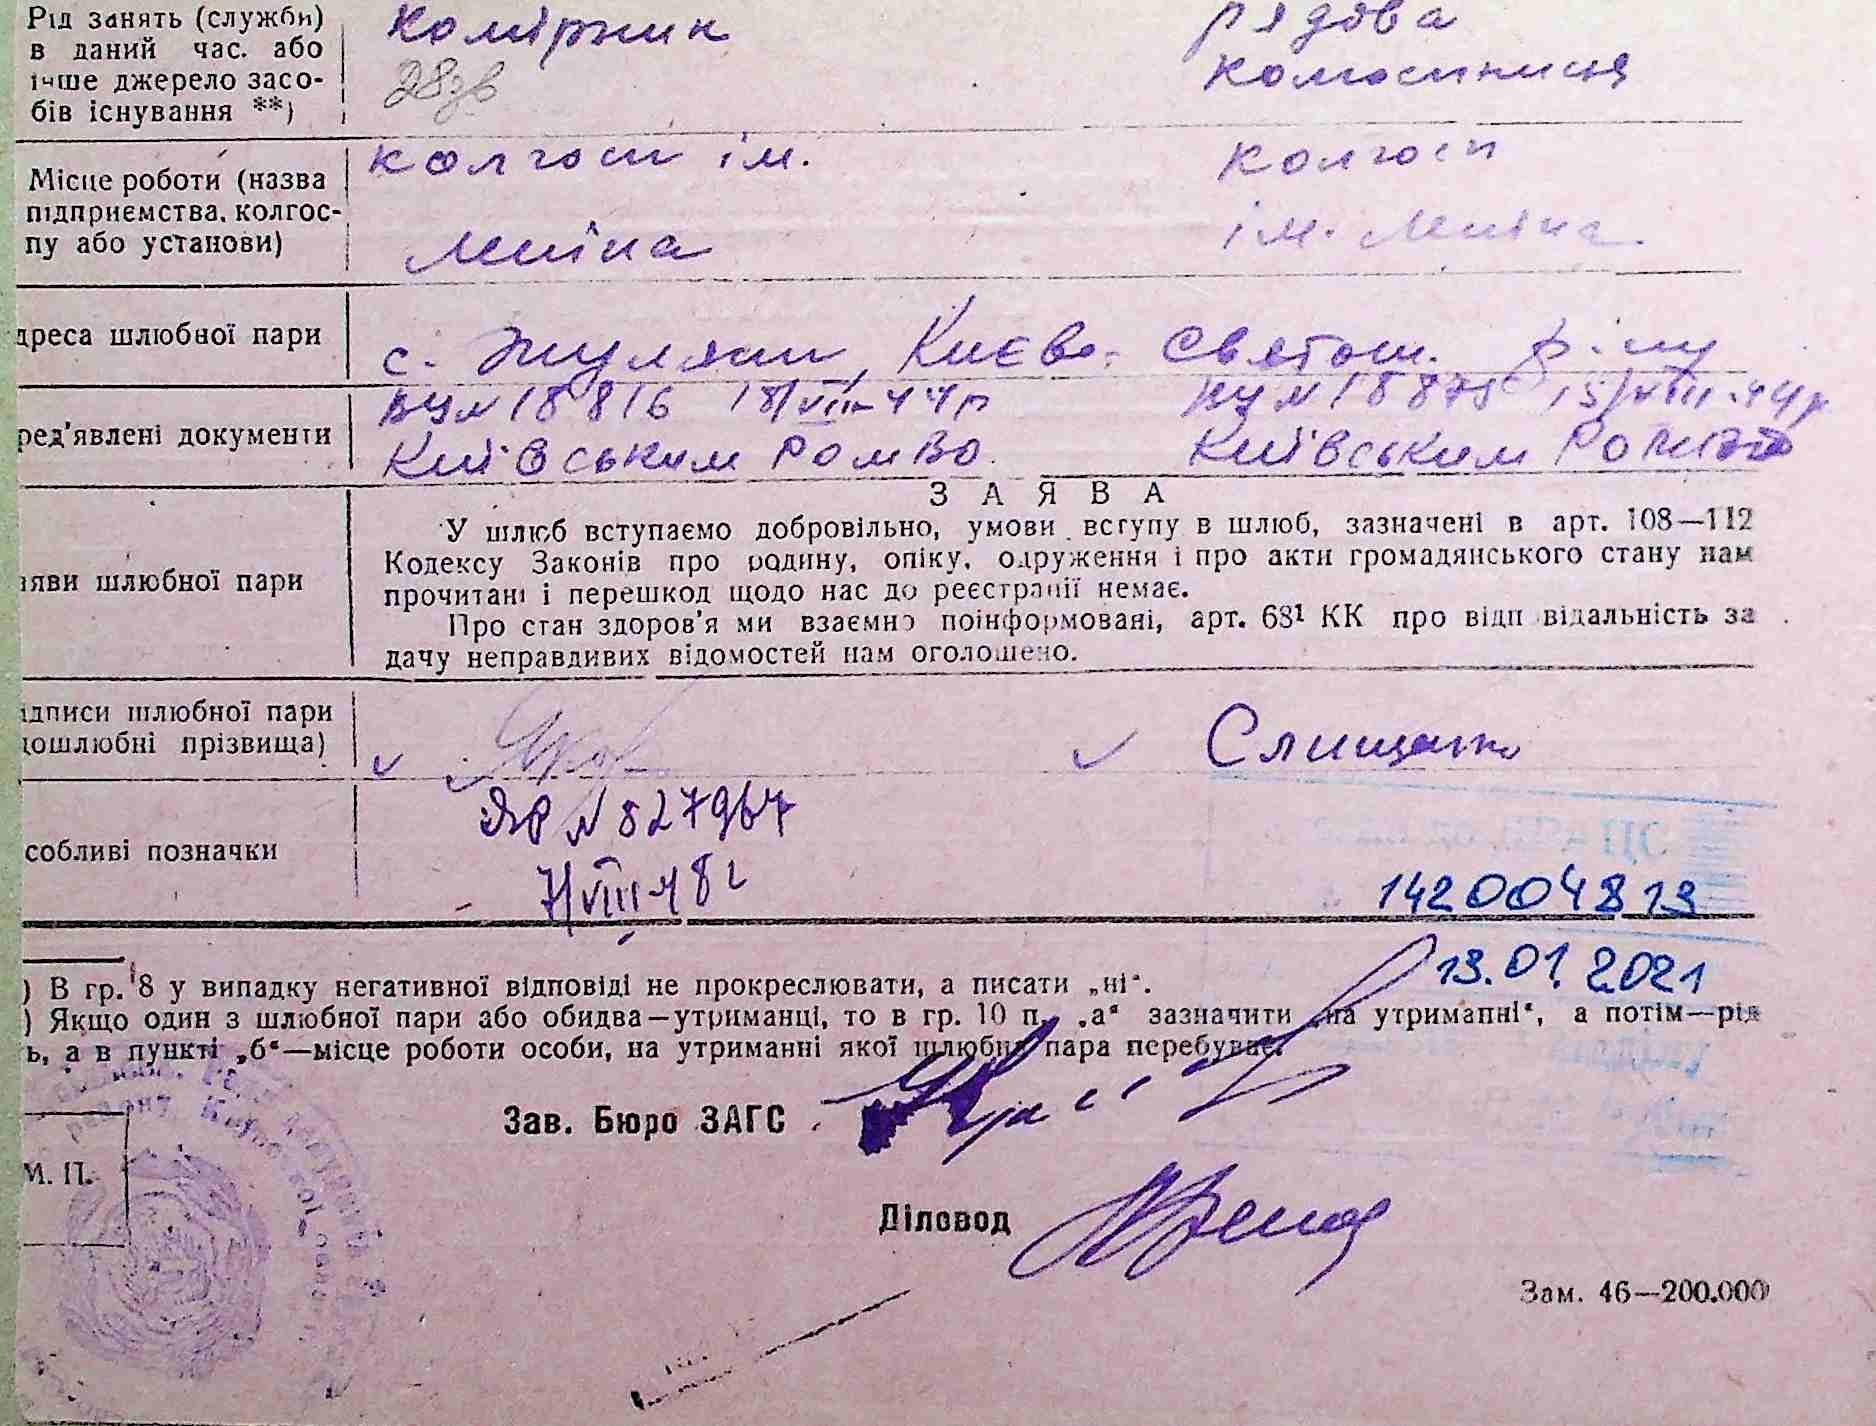 Рід занять (служби) Комірник рядова
в даний час. або колгоспниця
інше джерело засо- 28зв
бів існування **)
Місце роботи (назва колгосп ім. колгосп
підприємства, колгос-
пу або установи) Леніна ім. Леніна
дреса шлюбної пари с. Жуляни, Києво-Святош. р-ну
ред'явлені документи ВЦ № 18816 18/VIII-44р ВЦ № 18875 15/VIII-44р
Київським РОМВО Київським
З А Я В А
У шлюб вступаємо добровільно, умови вступу в шлюб, зазначені в арт. 108—112
Кодексу Законів про родину, опіку, одруження і про акти громадянського стану нам
яви шлюбної пари прочитані і перешкод щодо нас до реєстрації немає.
Про стан здоров'я ми взаємно поінформовані, арт. 68¹ КК про відп відальність за
дачу неправдивих відомостей нам оголошено.
дписи шлюбної пари
ошлюбні прізвища) Слищенко
собливі позначки ЯР № 827967
7/VIII-48 г
142004813
13.01.2021
) В гр. 8 у випадку негативної відповіді не прокреслювати, а писати „ні“.
) Якщо один з шлюбної пари або обидва—утриманці, то в гр. 10 п. „а“ зазначити „на утриманні“, а потім—рід
ь, а в пункті „б“—місце роботи особи, на утриманні якої шлюбна пара перебуває.
Зав. Бюро ЗАГС
М. П.
Діловод
Зам. 46—200.000